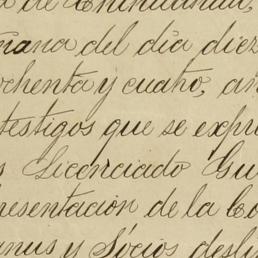 a de Chihuahua,
ñana del día diez
ochenta y cuatro, an
testigos que se expre
s Licenciado Gu
presentación de la Co
anus y Sócios desli